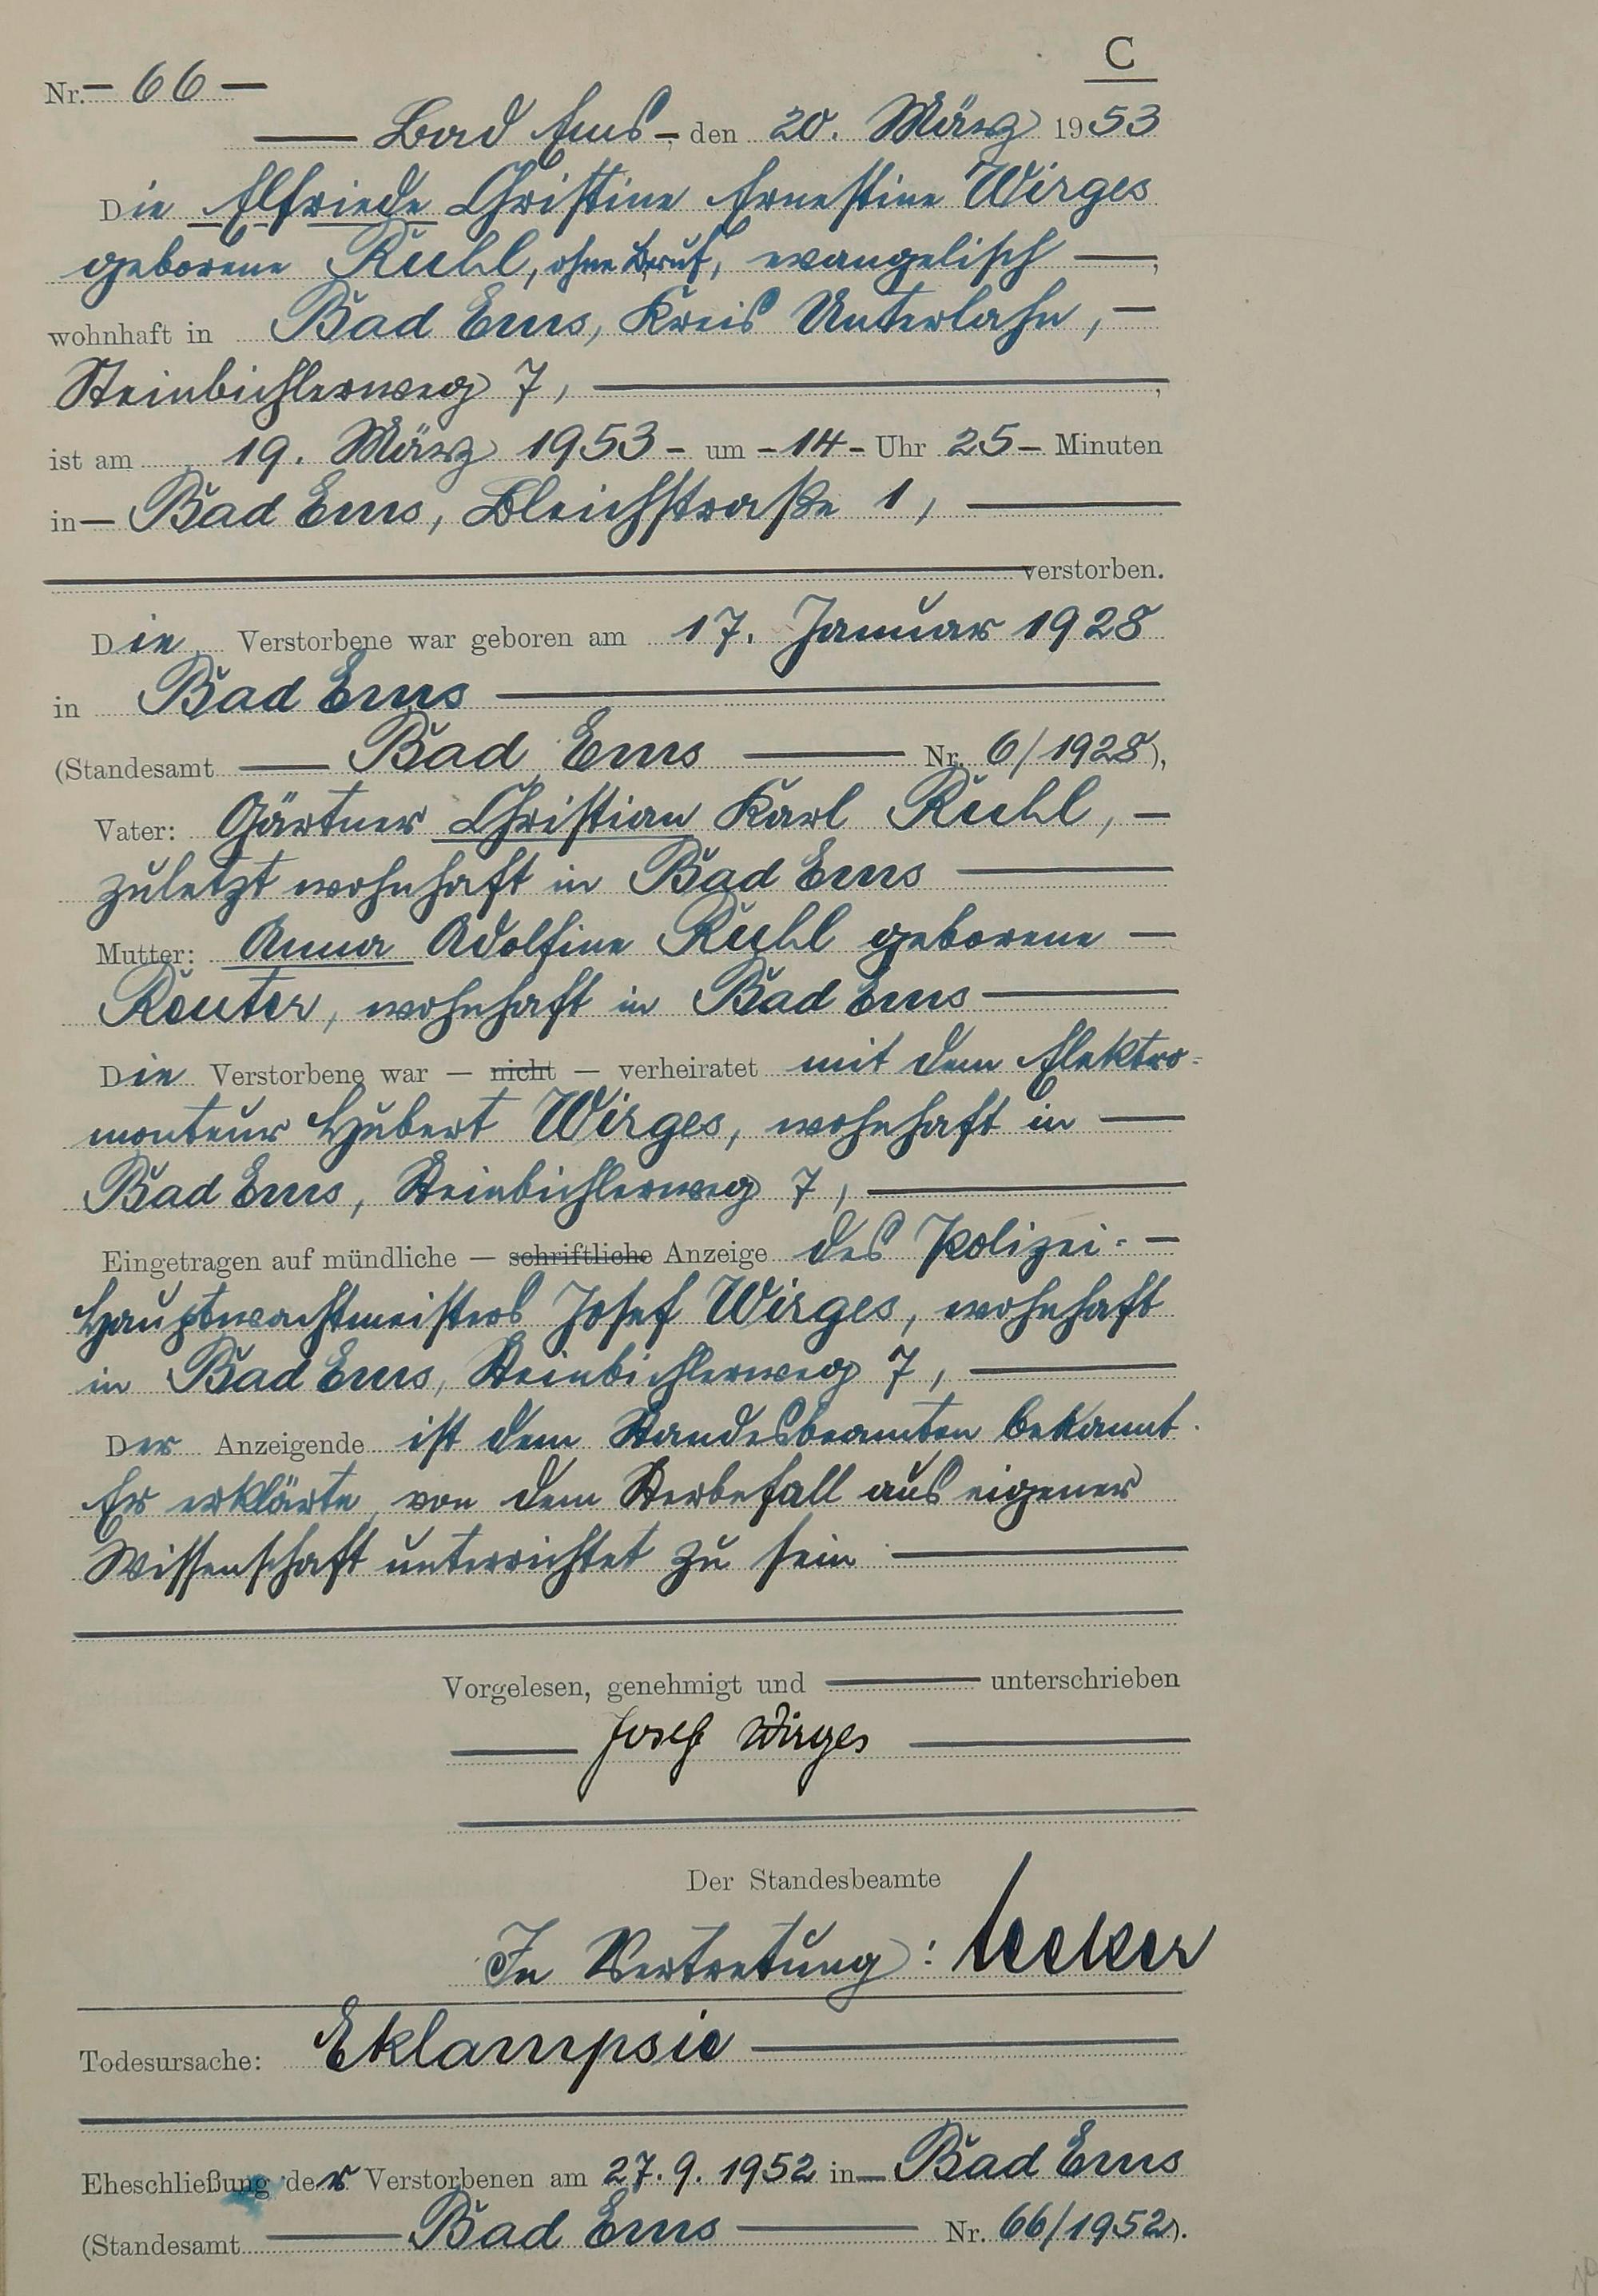 C
Nr. - 66 -
Bad Ems, den 20. März 1953
Die Elfriede Christine Ernestine Wirges
geborene Ruhl, ohne Beruf, evangelisch,
wohnhaft in Bad Ems, Kreis Unterlahn,
Steinbichlerweg 7,
ist am 19. März 1953 um 14 Uhr 25 Minuten
in Bad Ems, Bleichstraße 1,
verstorben.
Die Verstorbene war geboren am 17. Januar 1928
in Bad Ems
(Standesamt Bad Ems Nr. 6/1928),
Vater: Gärtner Christian Karl Ruhl,
zuletzt wohnhaft in Bad Ems
Mutter: Anna Adolfine Ruhl geborene
Reuter, wohnhaft in Bad Ems
Die Verstorbene war — nicht — verheiratet mit dem Elektro-
monteur Hubert Wirges, wohnhaft in
Bad Ems, Steinbichlerweg 7,
Eingetragen auf mündliche — schriftliche Anzeige des Polizei-
Hauptwachtmeisters Josef Wirges, wohnhaft
in Bad Ems, Steinbichlerweg 7,
Der Anzeigende ist dem Standesbeamten bekannt.
Er erklärte, von dem Sterbefall aus eigener
Wissenschaft unterrichtet zu sein
Vorgelesen, genehmigt und unterschrieben
Josef Wirges
Der Standesbeamte
In Vertretung:
Todesursache: Eklampsie
Eheschließung der Verstorbenen am 27.9.1952 in Bad Ems
(Standesamt Bad Ems Nr. 66/1952).